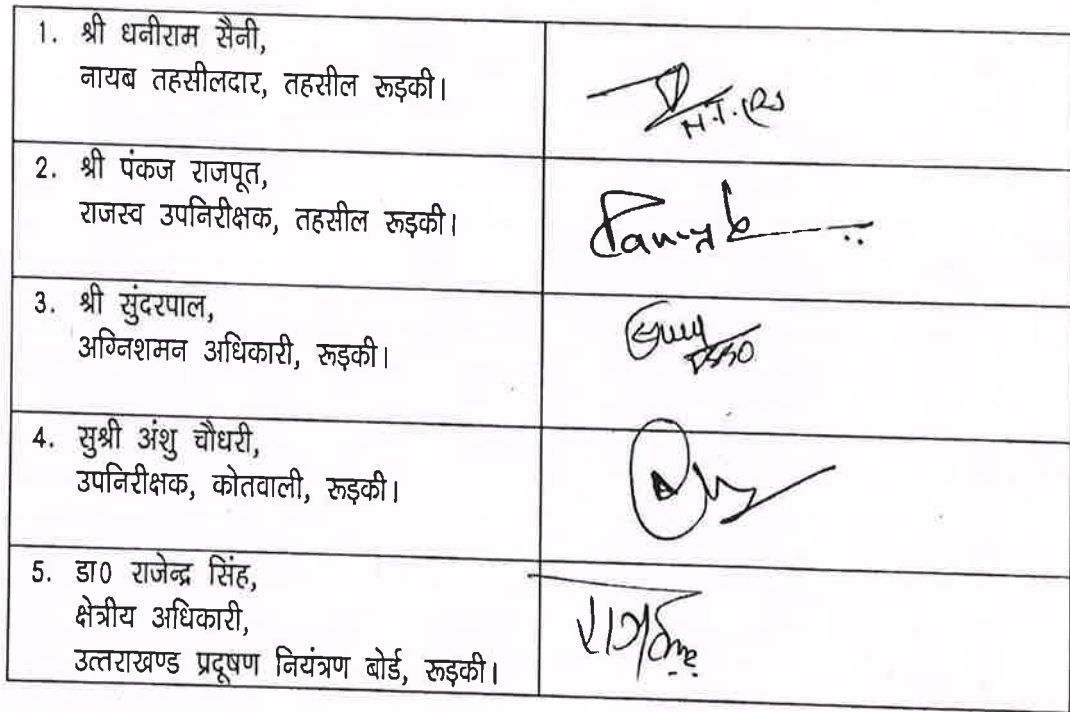 1. श्री धनीराम सैनी,
नायब तहसीलदार, तहसील रूड़की।
2. श्री पंकज राजपूत,
राजस्व उपनिरीक्षक, तहसील रूड़की।
3. श्री सुंदरपाल,
अग्निशमन अधिकारी, रूड़की।
4. सुश्री अंशु चौधरी,
उपनिरीक्षक, कोतवाली, रूड़की।
5. डा0 राजेन्द्र सिंह,
क्षेत्रीय अधिकारी,
उत्तराखण्ड प्रदूषण नियंत्रण बोर्ड, रूड़की।